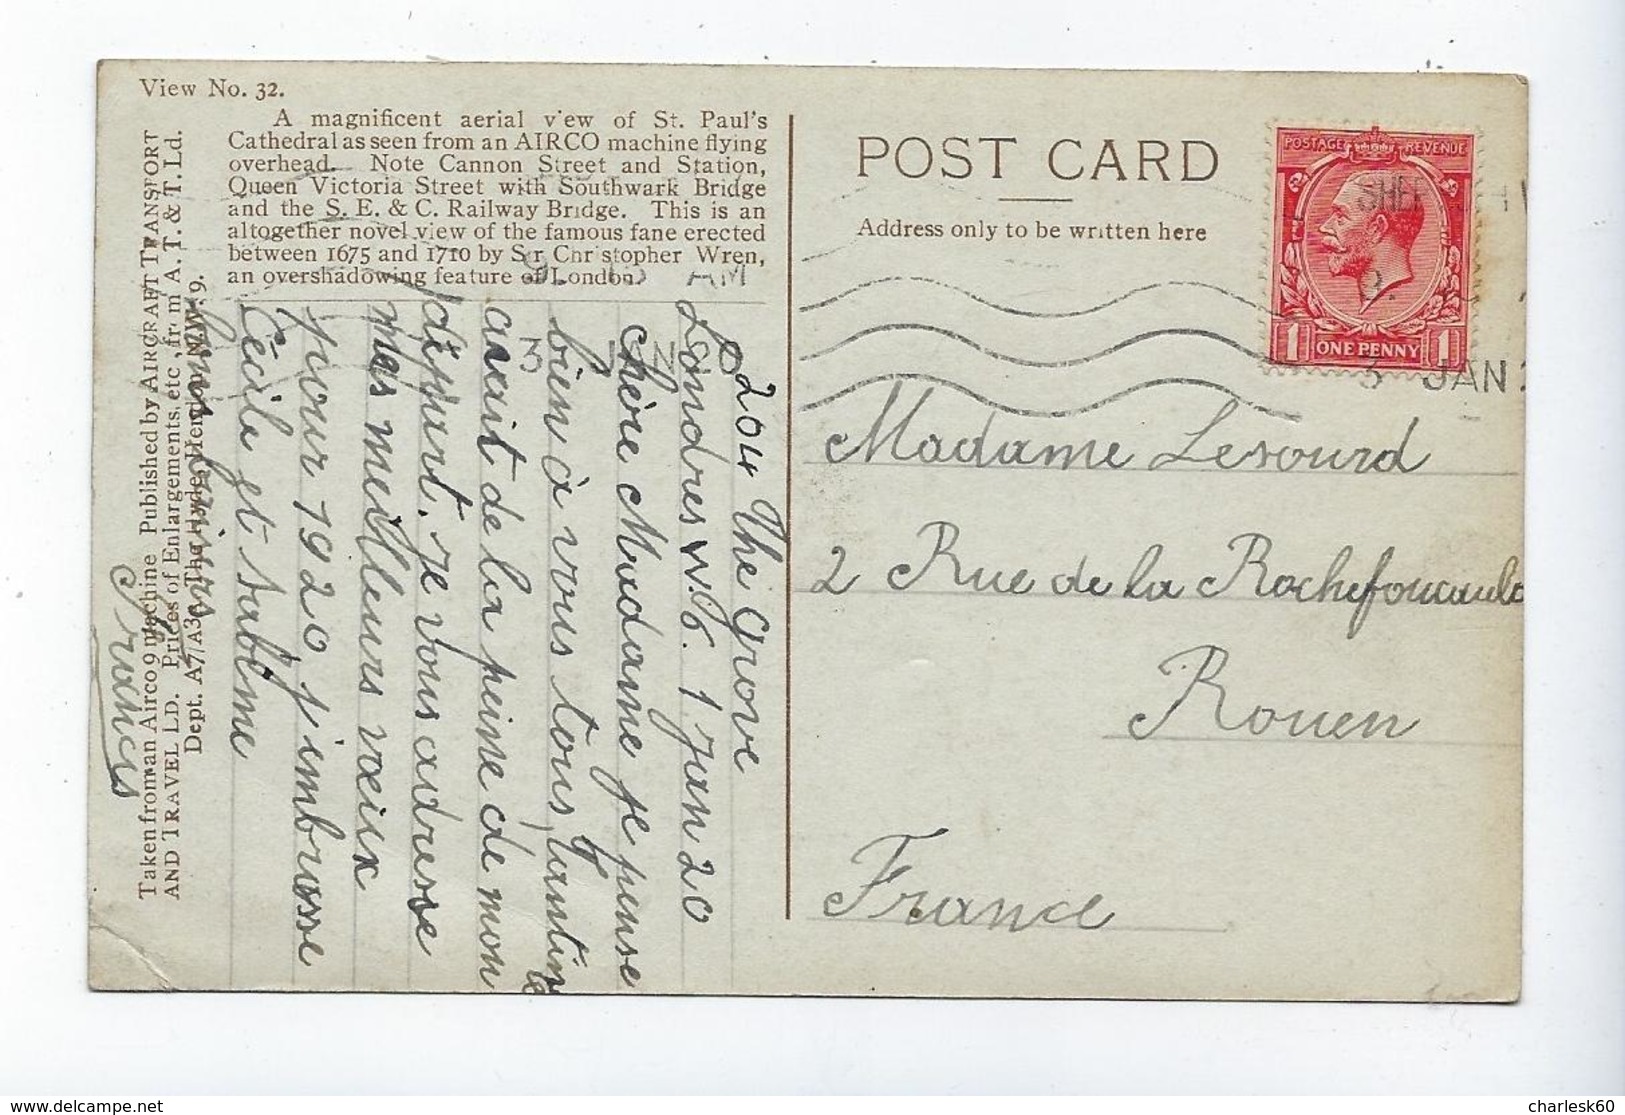 View No. 32.
A magnificent aerial view of St. Paul's
Cathedral as seen from an AIRCO machine flying
overhead. Note Cannon Street and Station,
Queen Victoria Street with Southwark Bridge
and the S. E. & C. Railway Bridge. This is an
altogether novel view of the famous fane erected
between 1675 and 1710 by Sir Christopher Wren,
an overshadowing feature of London.
Taken from an Airco 9 machine Published by AIRCRAFT TRANSPORT
AND TRAVEL LD. Prices of Enlargements, etc, from A. T. & T. Ld.
Dept. A7/A30 The Hyde, Hendon N.W. 9.
204 The Grove
Londres W.6. 1 Jan 20
chère Madame je pense
bien à vous tous, tantine
avait de la peine de mon
départ. Je vous adresse
mes meilleurs vœux
pour 1920 j'embrasse
Cécile et
baisers
Francis
POST CARD
Address only to be written here
POSTAGE REVENUE
1 ONE PENNY 1
AM
3 JAN 20
3 JAN
Madame Lesourd
2 Rue de la Rochefoucauld
Rouen
France
charlesk60